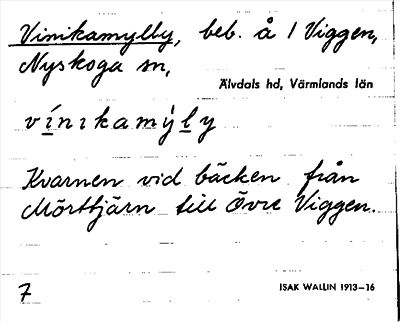 Vinikamylly, beb. å 1 Viggen,
Nyskoga sn,
Älvdals hd, Värmlands län
vínıkamỳly
Kvarnen vid bäcken från
Mörttjärn till Övre Viggen.
7
ISAK WALLIN 1913–16